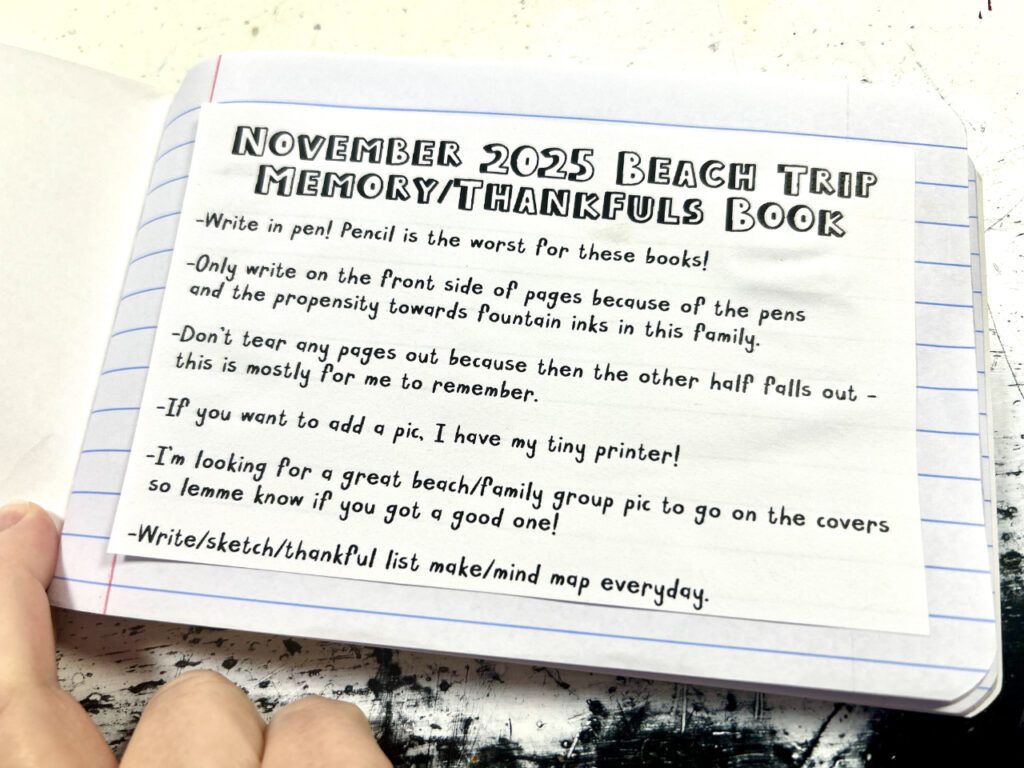 November 2025 Beach Trip
Memory/Thankfuls Book
-Write in pen! Pencil is the worst for these books!
-Only write on the front side of pages because of the pens
and the propensity towards fountain inks in this family.
-Don't tear any pages out because then the other half falls out -
this is mostly for me to remember.
-If you want to add a pic, I have my tiny printer!
-I'm looking for a great beach/family group pic to go on the covers
so lemme know if you got a good one!
-Write/sketch/thankful list make/mind map everyday.